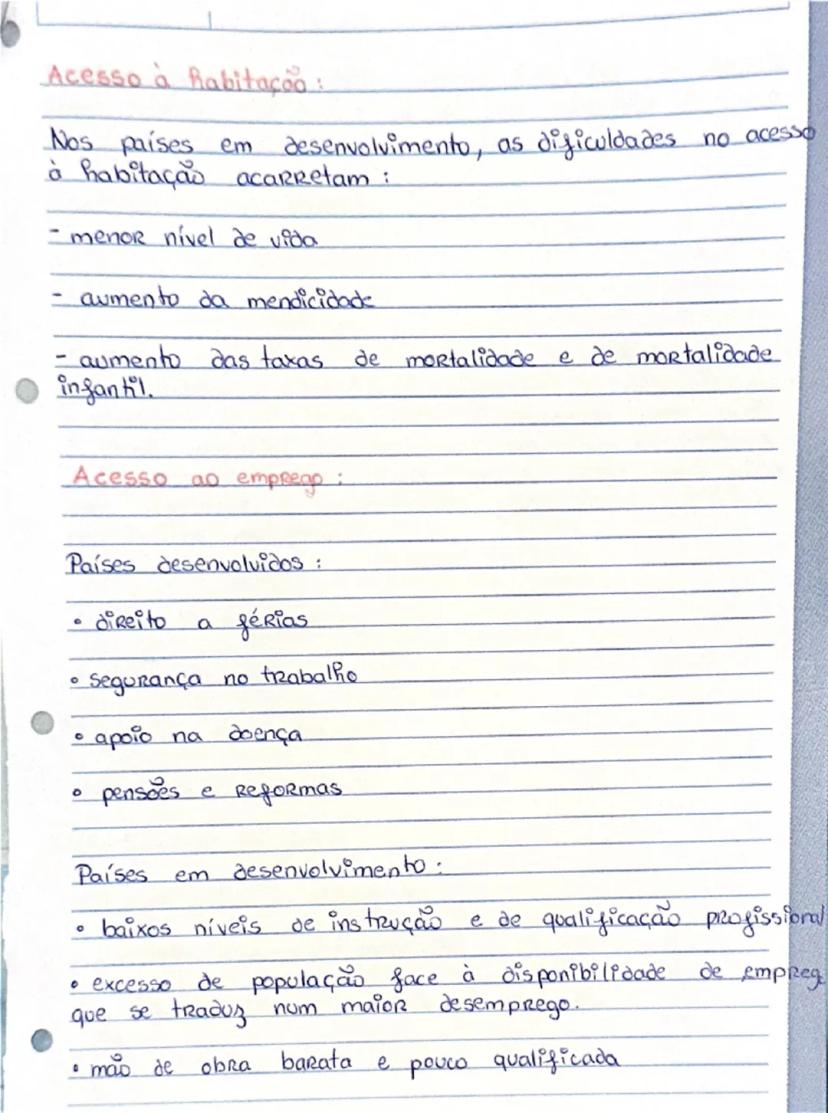 Acesso à habitação :
Nos países em desenvolvimento, as dificuldades no acesso
à habitação acarretam :
- menor nível de vida
- aumento da mendicidade
- aumento das taxas de mortalidade e de mortalidade
infantil.
Acesso ao emprego :
Países desenvolvidos :
• direito a férias
• segurança no trabalho
• apoio na doença
• pensões e reformas
Países em desenvolvimento :
• baixos níveis de instrução e de qualificação profissional
• excesso de população face à disponibilidade de empreg
que se traduz num maior desemprego.
• mão de obra barata e pouco qualificada